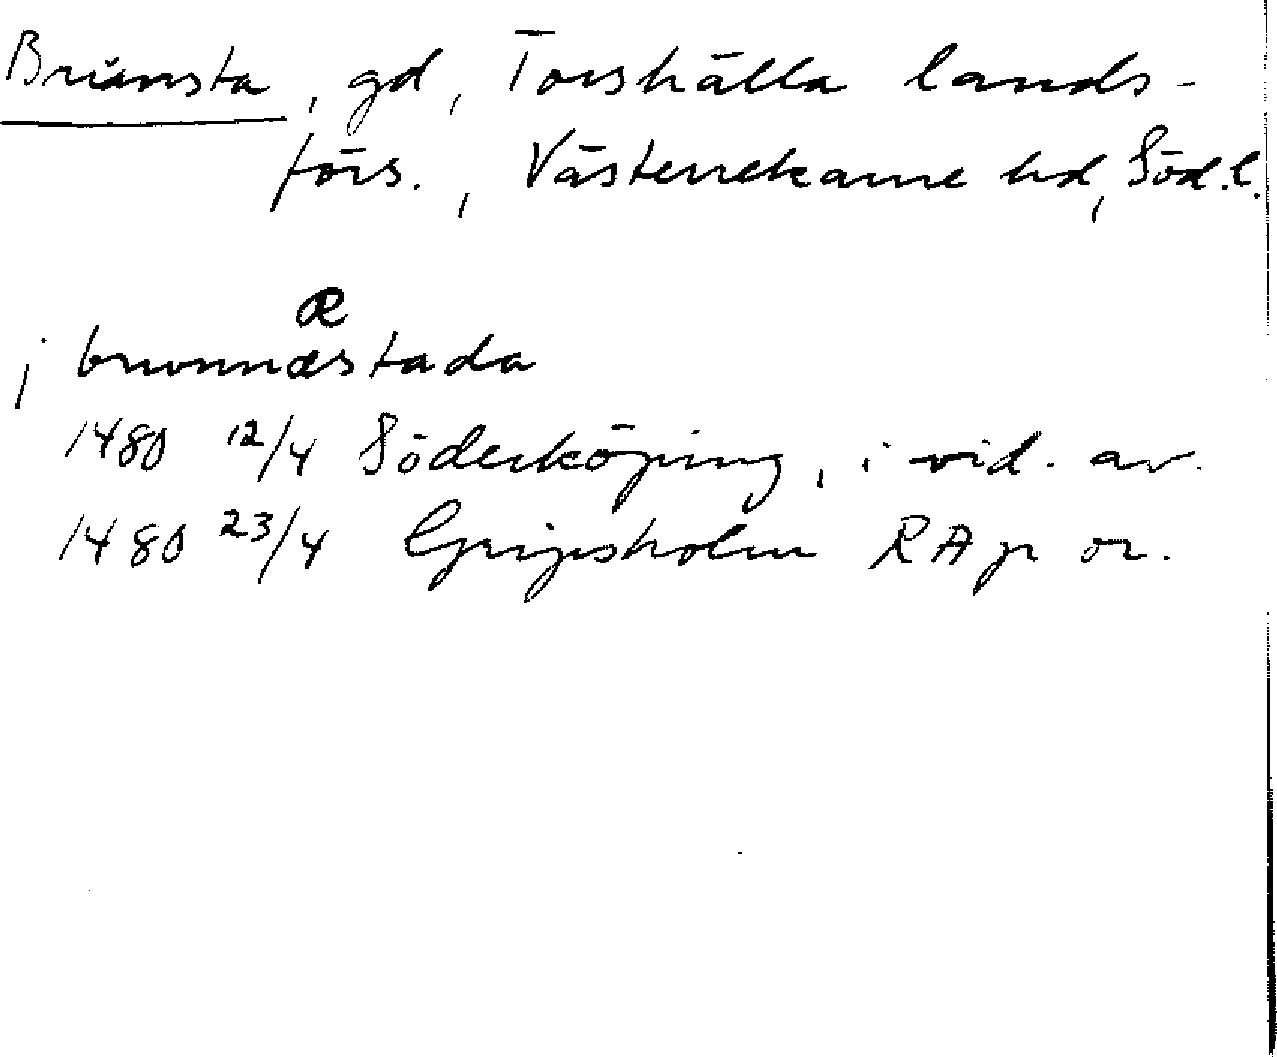 Brunsta, gd, Torshälla lands-
förs., Västerrekarne hd, Söd.l.
æ
j brunnæstada
1480 12/4 Söderköping, i vid. av
1480 23/4 Gripsholm RAp or.